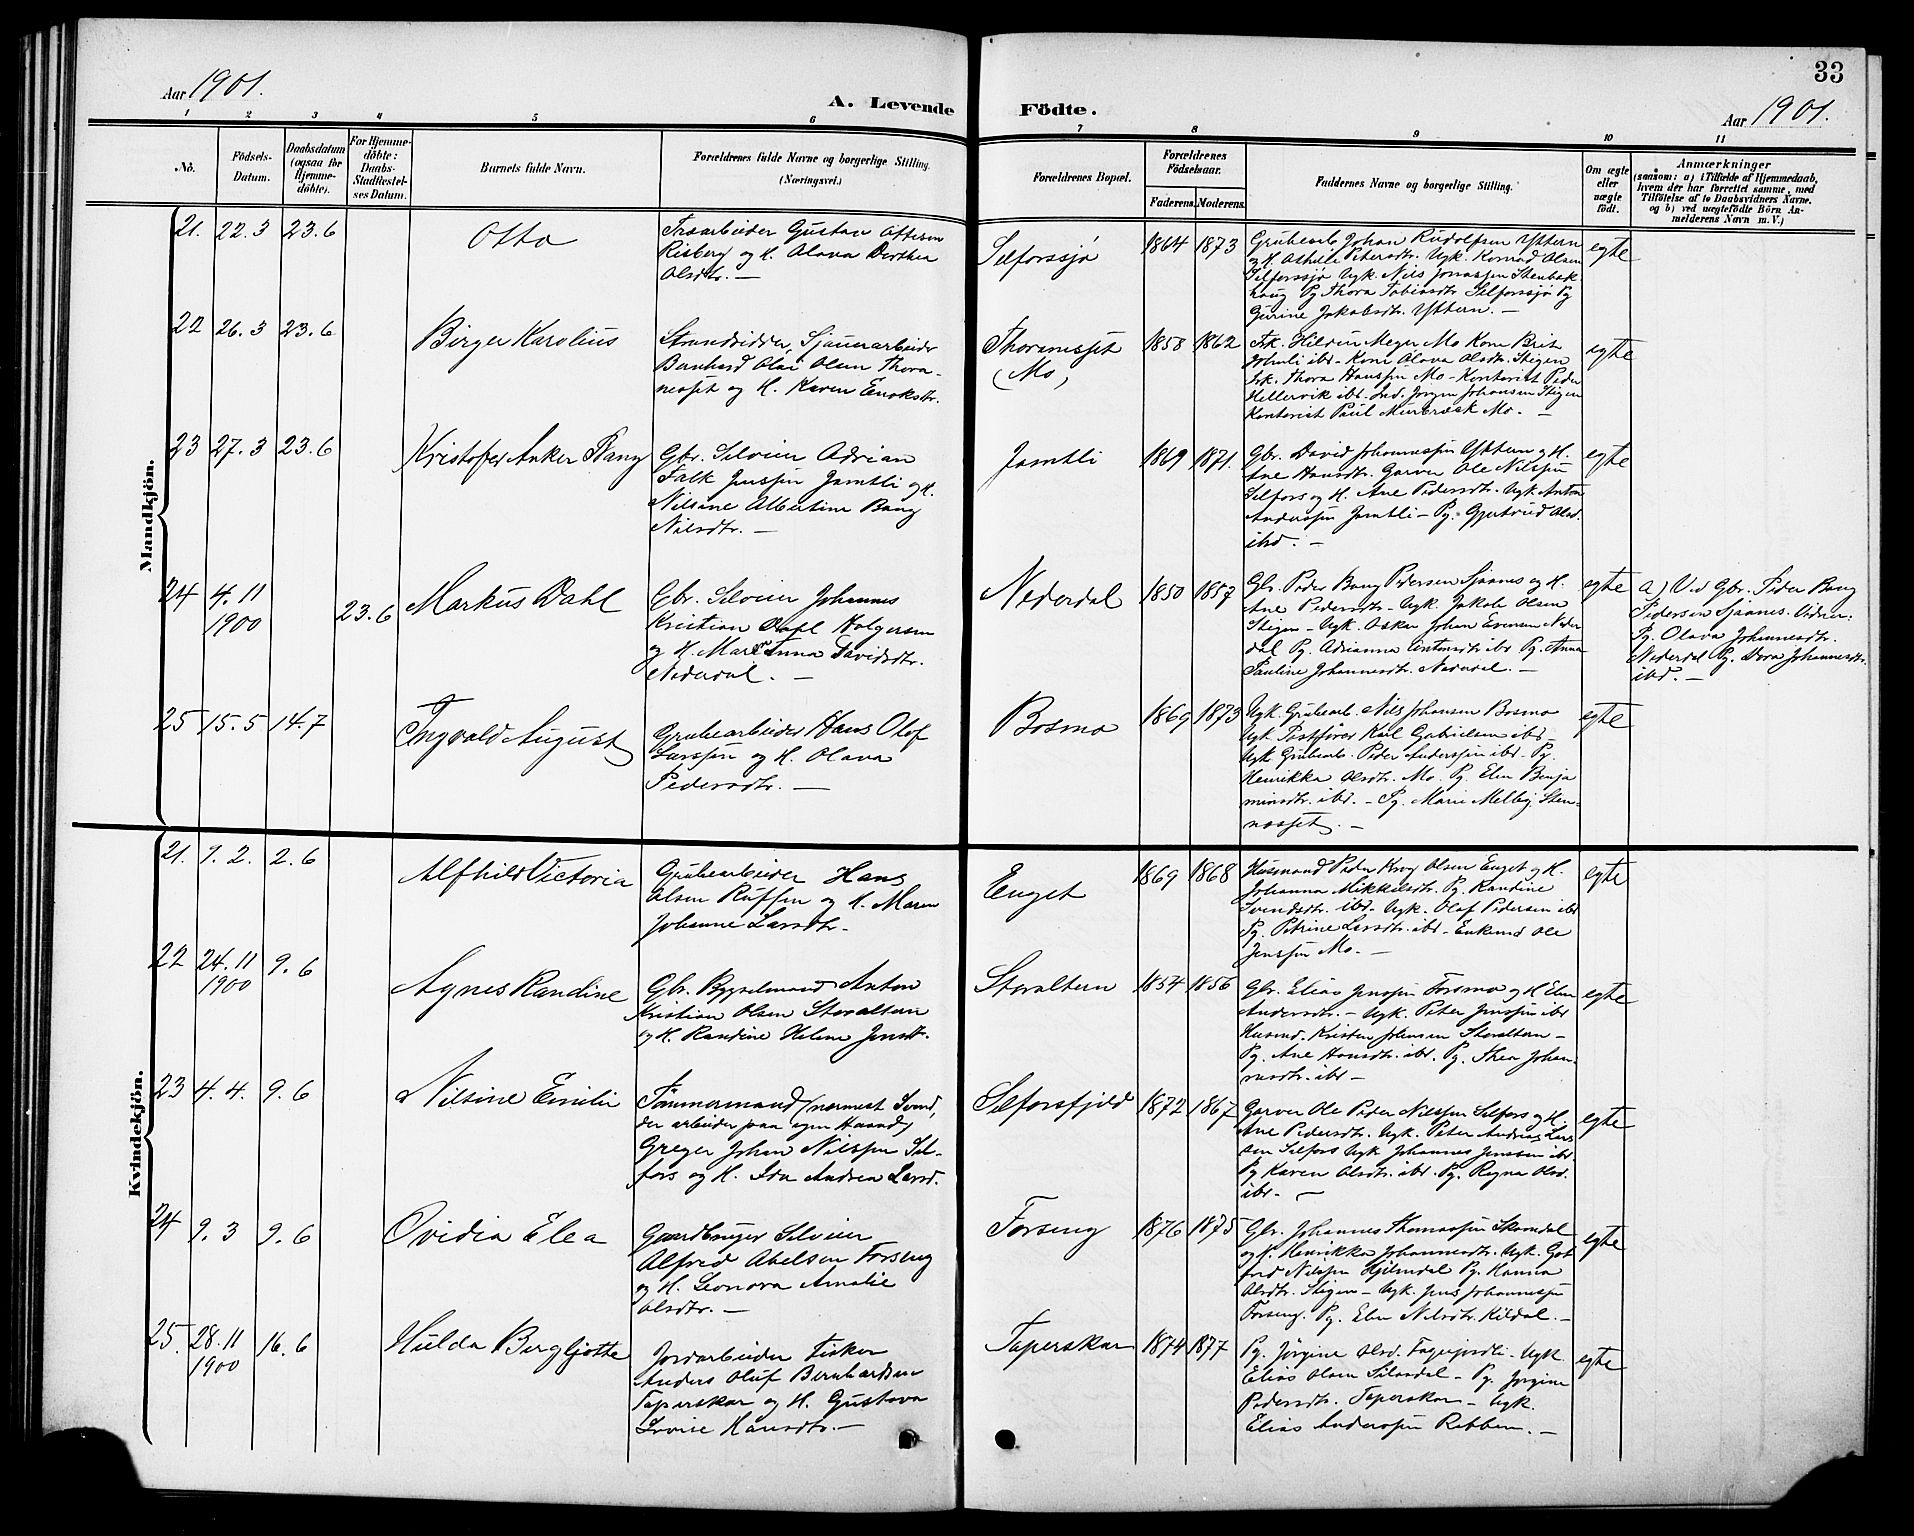 33
Aar 1901.
A. Levende Födte.
Aar 1901.
1 2 3 4 5 6 7 8 9 10 11
No.
Födsels-
Datum.
Daabsdatum
(ogsaa for
Hjemme-
döbte).
For Hjemme-
döbte:
Daabs-
Stadfæstel-
ses Datum.
Barnets fulde Navn.
Forældrenes fulde Navne og borgerlige Stilling.
(Næringsvei.)
Forældrenes Bopæl.
Forældrenes
Födselsaar.
Faderens. Moderens.
Faddernes Navne og borgerlige Stilling.
Om ægte
eller
uægte
födt.
Anmærkninger
(saasom: a) i Tilfælde af Hjemmedaab,
hvem der har forrettet samme, med
Tilföielse af to Daabsvidners Navne.
og b) ved uægtefödte Börn An-
melderens Navn m. V.)
Mandkjön.
21. 22.3 23.6
Otto
Gustav Ottesen
Risberg og H. Olava Dorthea
Olsdtr. —
Selforssjø
1864 1873
Grubearb. Johan Rudolfsen Yttern
og H. Pedersdtr. Ugk. Konrad Olsen
Selforssjø Ugk. Nils Jonassen Stenbak
haug Pg. Thora Tobiasdtr. Selforssjø Pg.
Gurine Jakobsdtr. Yttern. —
egte
22 26.3 23.6
Birger Karolius
Strandsidder, Sjauerarbeider
Bernhard Olai Olsen Thora-
neset og H. Karen Enoksdtr.
Thoranesset
(Mo)
1858 1862
Frk. Meyer Mo Kone Brit
ibd. Kone Olava Olsdtr. Stigen
Frk. Thora Hanssen Mo - Kontorist Peder
Hellervik ibd. Ind. Jørgen Johansen Stigen
Kontorist Paul Mo. —
egte
23 27.3 23.6
Kristofer Anker Bang
Gbr. Selveier Adrian
Falk Jenssen Jamtli og H.
Nilsine Albertine Bang
Nilsdtr. —
Jamtli
1869 1871.
Gbr. David Johannessen Yttern og H.
Ane Hansdtr. Garver Ole Nilssen
Selfors og H. Ane Pedersdtr. Ugk. Anton
Anderssen Jamtli - Pg. Gjertrud Olsd.
ibd. —
egte
24 4.11
1900
23.6
Markus Dahl
Gbr. Selveier Johannes
Kristian Dahl Holgersen
og H. Maren Anna Davidsdtr.
Nederdal. —
Nederdal
1850 1857
Gbr. Peder Bang Pedersen Sjaanes og H.
Ane Pedersdtr. - Ugk. Jakob Olsen
Stigen - Ugk. Oskar Johan Evensen Neder
dal Pg. Adrianna Antonsdtr. ibd. Pg. Anna
Pauline Johannesdtr. Nederdal. —
egte
a) Ved Gbr. Peder Bang
Pedersen Sjaanes. Vidner:
Pg. Olava Johannesdtr.
Nederdal Pg. Dora Johannesdtr.
ibd. —
25 15.5 14.7
Ingvald August
Grubearbeider Hans Olof
Larssen og H. Olava
Pedersdtr. —
Bosmo
1869 1873
Ugk. Grubearb. Nils Johansen Bosmo
Ugk. Postfører Karl Gabrielsen ibd. -
Ugk. Grubearb. Peder Anderssen ibd. Pg.
Henrikka Olsdtr. Mo. Pg. Elen Benja
minsdtr. ibd. - Pg. Marie Melbÿ Sten-
naasset. —
egte
Kvindekjön.
21. 9.2. 2.6
Alfhild Victoria
Grubearbeider Hans
Olsen Ruffen og H. Maren
Johanne Larsdtr. -
Enget
1869 1868
Husmand Peder Krog Olsen Enget og H.
Johanna Mikkelsdtr. Pg. Randine
Svendsdtr. ibd. - Ugk. Olaf Pedersen ibd
Pg. Petrine Larsdtr. ibd. - Enkemd Ole
Jenssen Mo. —
egte
22 24.11
1900
9.6
Agnes Randine
Gbr. Bygselmand Anton
Kristian Olsen Storaltern
og H. Randine Helene Jensdtr.
Storaltern
1854 1856
Gbr. Elias Jenssen Forsmo og H Elen
Andersdtr. - Ugk. Peter Jenssen ibd
Husmd. Kristen Johnsen Storaltern -
Pg. Ane Hansdtr. ibd. Pg. Thea Johan-
nesdtr. ibd —
egte
23 4.4. 9.6
Nilsine Emilie
Tømmermand (nærmest Svend,
der arbeider paa egen Haand)
Greger Johan Nilssen Sel-
fors og H. Ida Andrea Larsd.
Selforsfjeld
1872 1867
Garver Ole Peder Nilssen Selfors og H.
Ane Pedersdtr. Ugk. Peter Andreas Lars
sen Selfors Ugk Johannes Jenssen ibd
Pg. Karen Olsdtr. ibd. Pg. Regna Olsd.
ibd. —
egte
24 9.3 9.6
Ovidia Elea
Gaardbruger Selveier
Alfred Abelsen Forseng
og H. Leonora Amalie
Olsdtr. —
Forseng
1876 1875
Gbr. Johannes Thomassen Skamdal
og H. Henrikka Johannesdtr. Ugk. Got
fred Nilssen Hjelmdal Pg. Hanna
Olsdtr. Stigen - Ugk. Jens Johannessen
Forseng. Pg. Elen Nilsdtr. Kildal. —
egte
25. 28.11
1900
16.6
Hulda Bergljotte
Jordarbeider Fisker
Anders Oluf Bernhardsen
Taperskar og H. Gustava
Lovise Hansdtr. —
Taperskar
1874 1877
Pg. Jørgine Olsd. Fagerjordli - Ugk
Elias Olsen - Pg. Jørgine
Pedersdtr. Taperskar - Ugk.
Elias Anderssen Rebben. —
egte